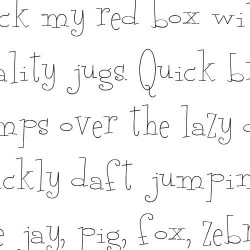 ck my red box wi
ality jugs. Quick b
mps over the lazy
ckly daft jumpin
e jay, pig, fox, zeb